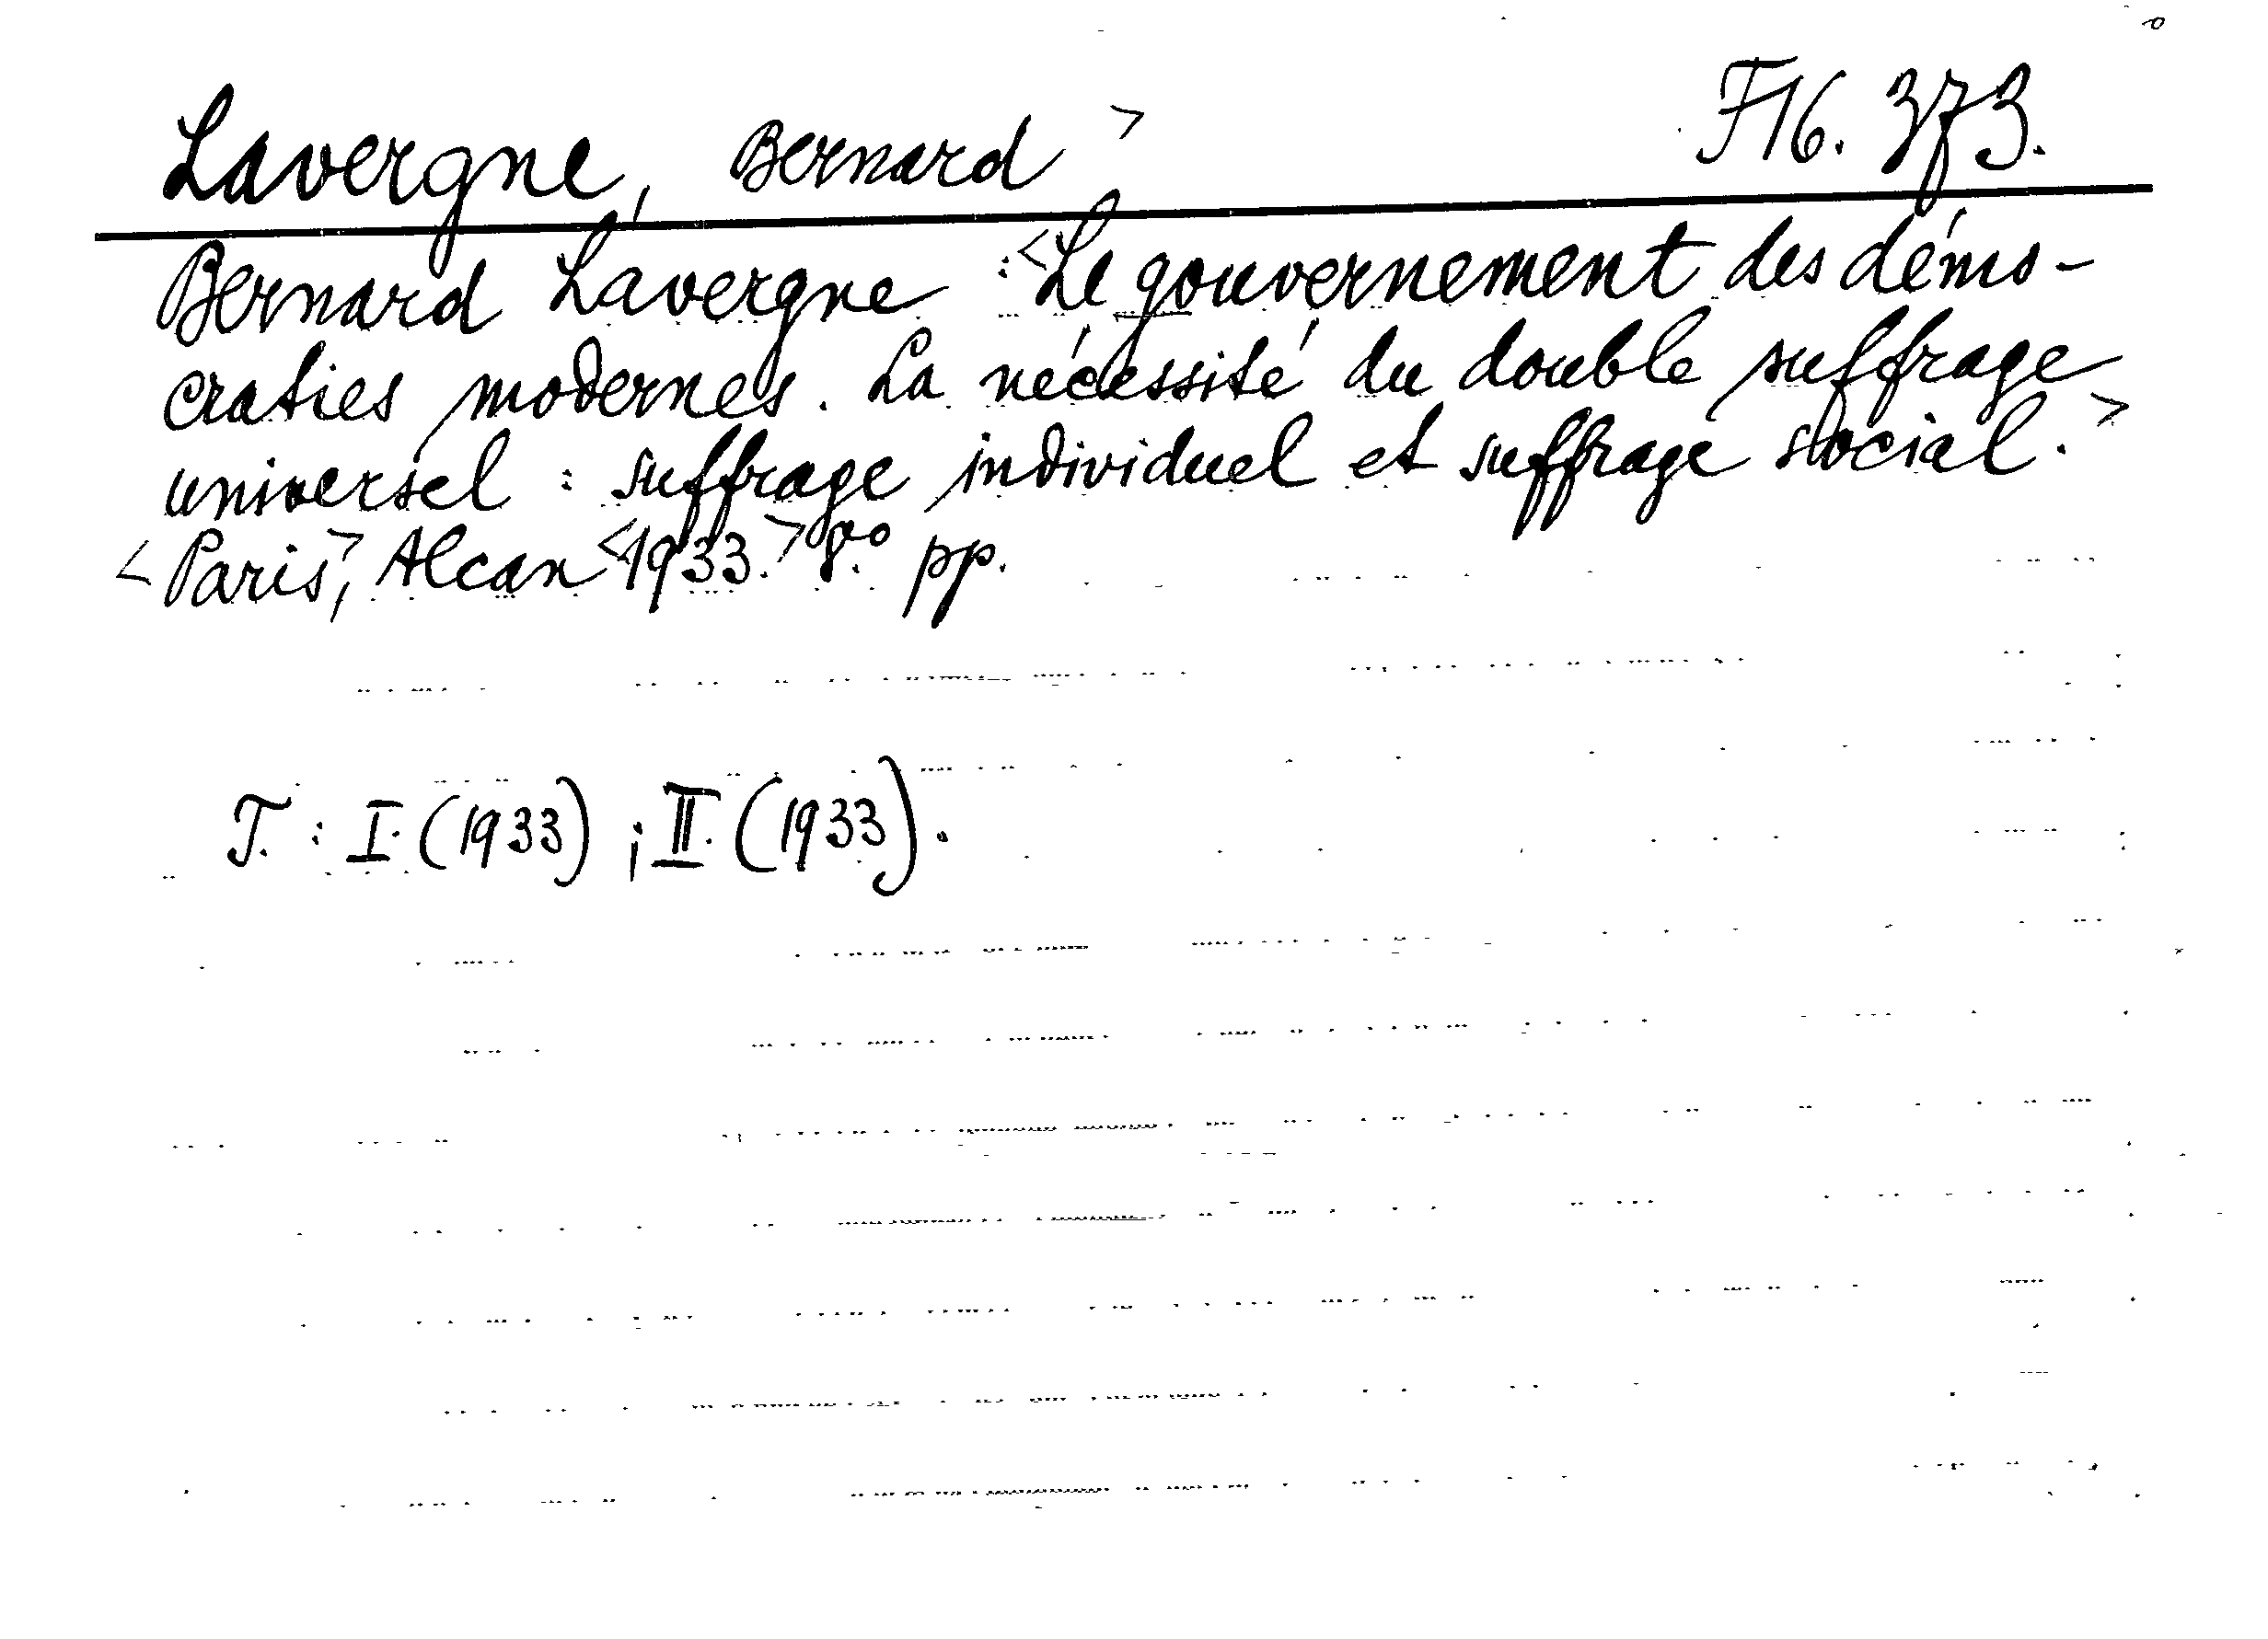 Lavergne, Bernard > F16. 373.
Bernard Lavergne : <Le gouvernement des démo-
craties modernes. La nécessité du double suffrage
universel : suffrage individuel et suffrage social.>
<Paris>, Alcan <1933.> 8.° pp.
T. : I. (1933) ; II. (1933).